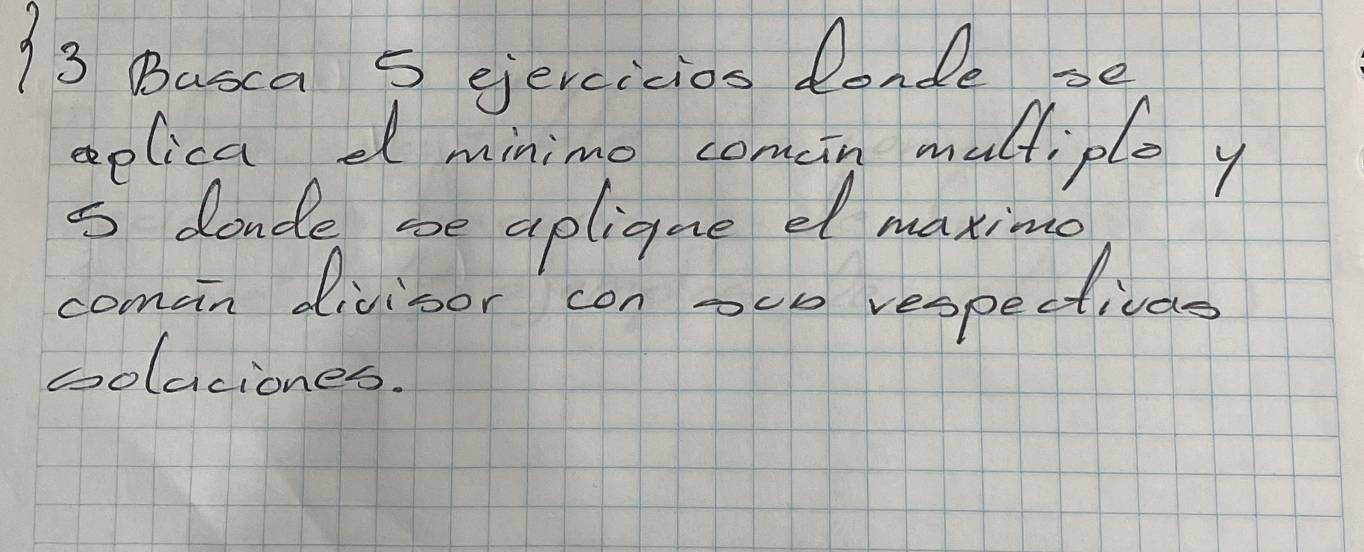 3 Busca 5 ejercicios donde se
aplica el minimo común multiplo y
5 donde se aplique el maximo
común divisor con sus respectivas
soluciones.